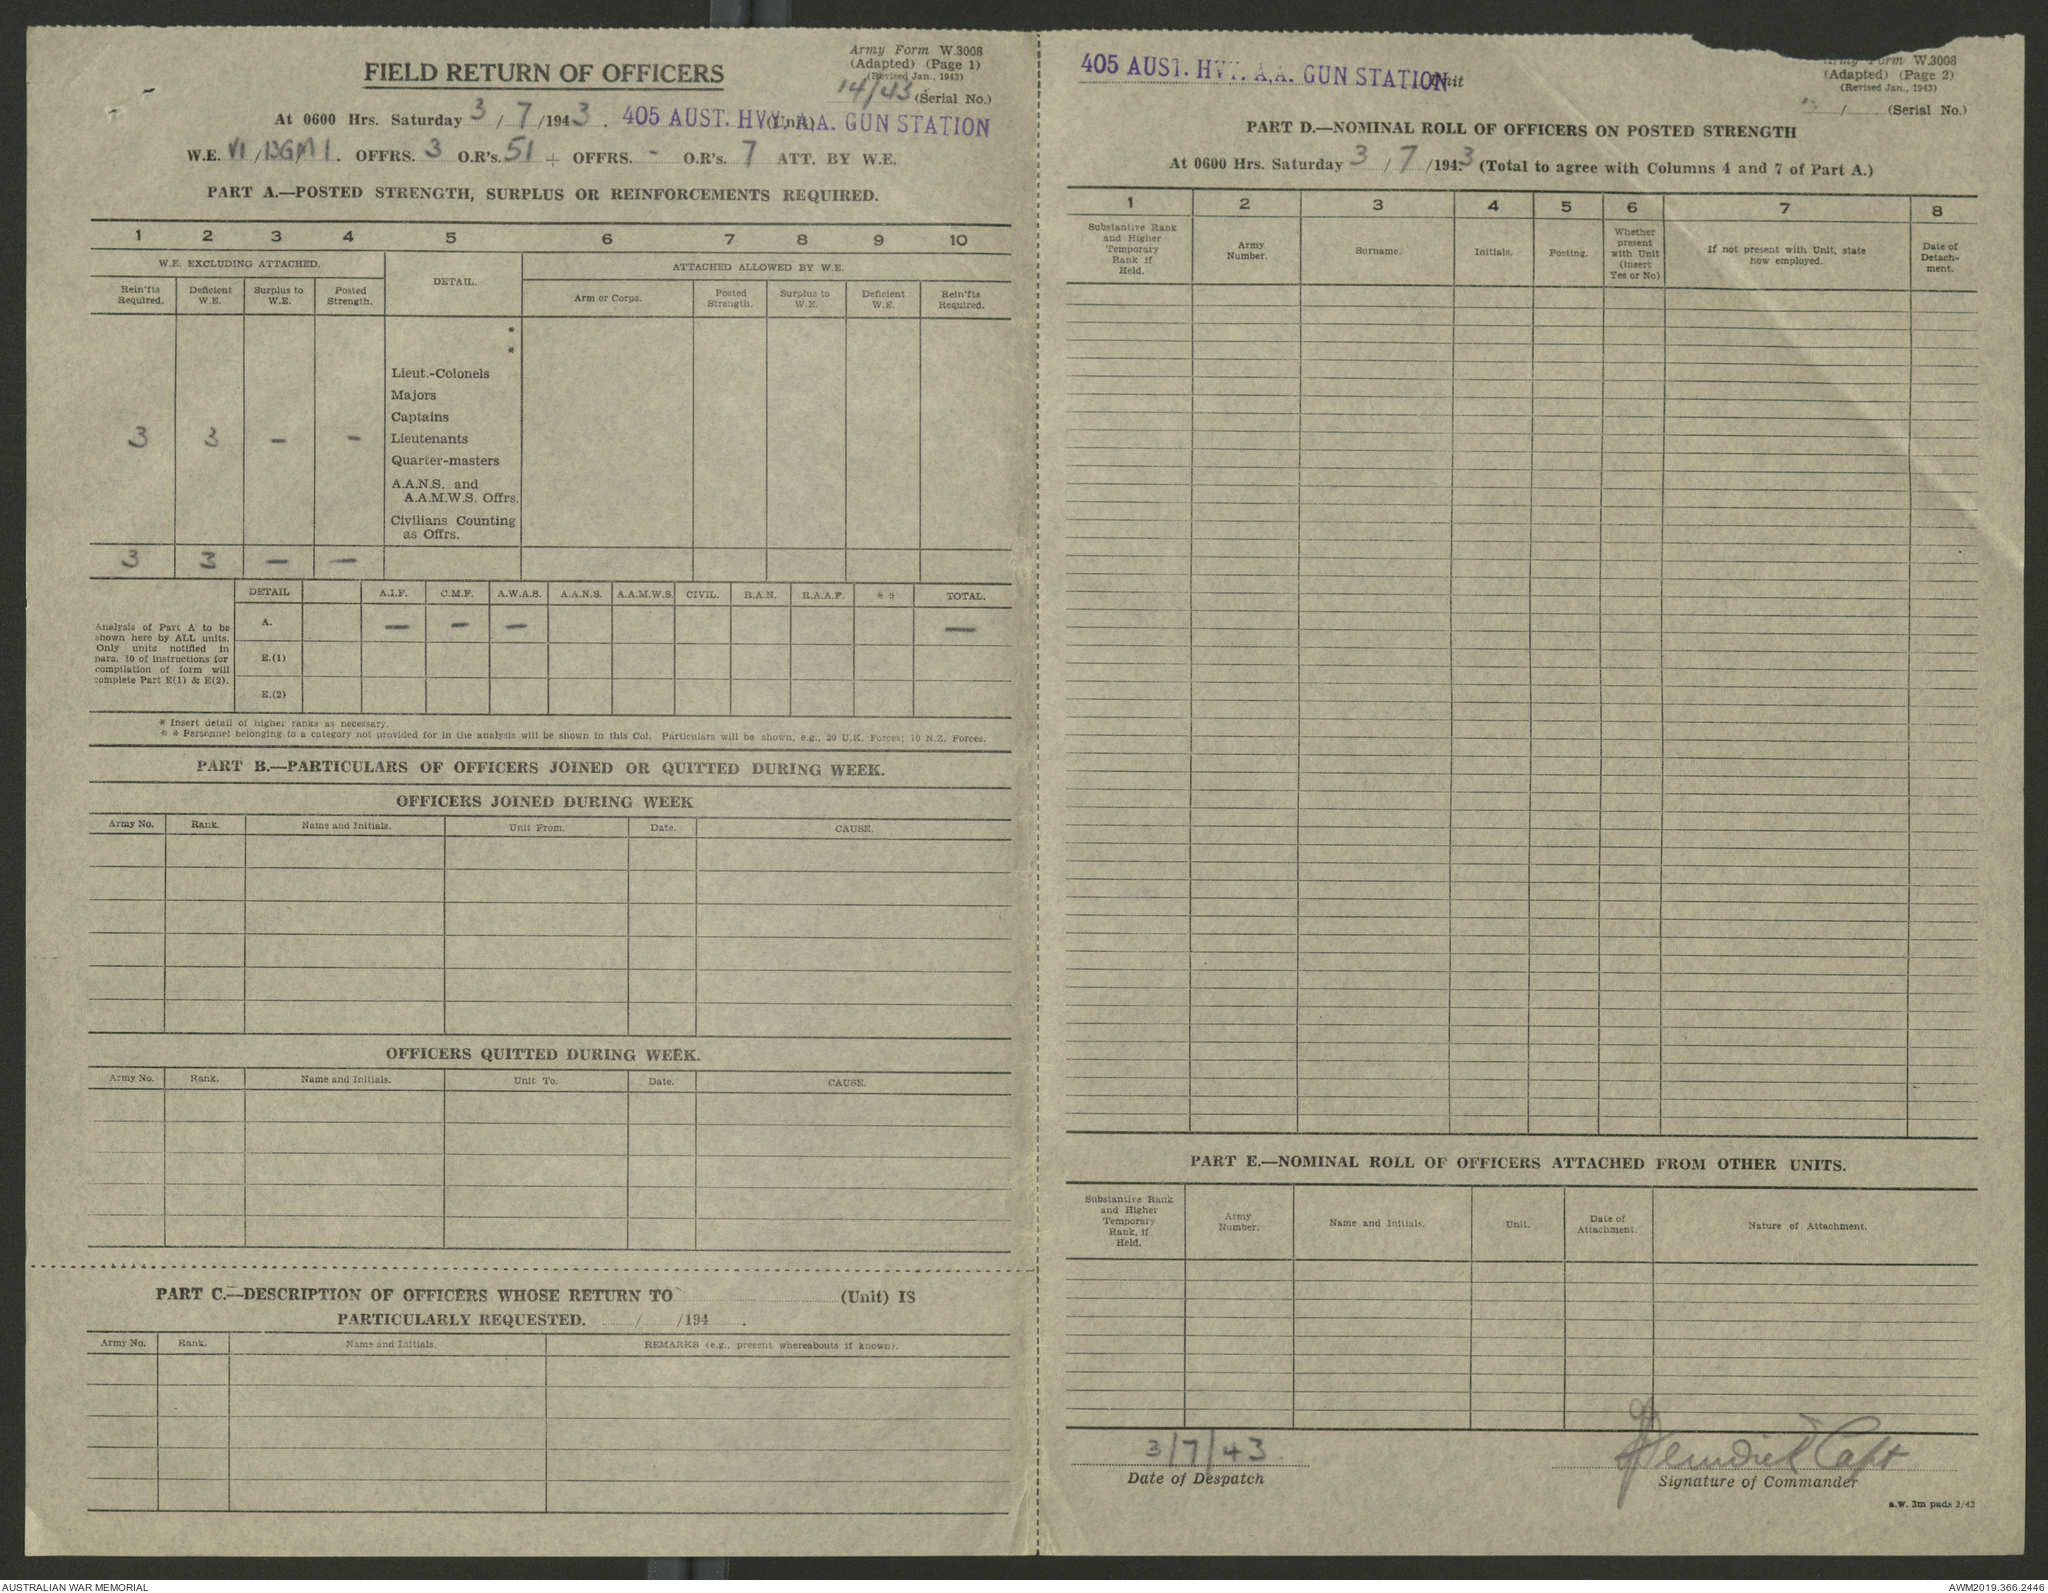 Army Form W.3008
(Adapted) (Page 1)
(Revised Jan., 1943)
FIELD RETURN OF OFFICERS
14/43 (Serial No.)
At 0600 Hrs. Saturday 3 / 7 /1943. 405 AUST. HVY. A.A. GUN STATION (Unit)
W.E. VI /13G/M 1. OFFRS. 3 O.R's. 51 + OFFRS. - O.R's. 7 ATT. BY W.E.
PART A.—POSTED STRENGTH, SURPLUS OR REINFORCEMENTS REQUIRED.
1 2 3 4 5 6 7 8 9 10
W.E. EXCLUDING ATTACHED. DETAIL. ATTACHED ALLOWED BY W.E.
Rein'fts Required. Deficient W.E. Surplus to W.E. Posted Strength. Arm or Corps. Posted Strength. Surplus to W.E. Deficient W.E. Rein'fts Required.
*
*
Lieut.-Colonels
Majors
Captains
3 3 - - Lieutenants
Quarter-masters
A.A.N.S. and
A.A.M.W.S. Offrs.
Civilians Counting
as Offrs.
3 3 — —
DETAIL A.I.F. C.M.F. A.W.A.S. A.A.N.S. A.A.M.W.S. CIVIL. R.A.N. R.A.A.F. * * TOTAL.
A. — — — —
E.(1)
E.(2)
Analysis of Part A to be
shown here by ALL units.
Only units notified in
para. 10 of instructions for
compilation of form will
complete Part E(1) & E(2).
* Insert detail of higher ranks as necessary.
* * Personnel belonging to a category not provided for in the analysis will be shown in this Col. Particulars will be shown, e.g., 20 U.K. Forces; 10 N.Z. Forces.
PART B.—PARTICULARS OF OFFICERS JOINED OR QUITTED DURING WEEK.
OFFICERS JOINED DURING WEEK
Army No. Rank. Name and Initials. Unit From. Date. CAUSE.
OFFICERS QUITTED DURING WEEK.
Army No. Rank. Name and Initials. Unit To. Date. CAUSE.
PART C.—DESCRIPTION OF OFFICERS WHOSE RETURN TO (Unit) IS
PARTICULARLY REQUESTED. / /194 .
Army No. Rank. Name and Initials. REMARKS (e.g., present whereabouts if known).
405 AUST. HVY. A.A. GUN STATION Unit
Army Form W.3008
(Adapted) (Page 2)
(Revised Jan., 1943)
/ (Serial No.)
PART D.—NOMINAL ROLL OF OFFICERS ON POSTED STRENGTH
At 0600 Hrs. Saturday 3 / 7 /1943 (Total to agree with Columns 4 and 7 of Part A.)
1 2 3 4 5 6 7 8
Substantive Rank and Higher Temporary Rank if Held. Army Number. Surname. Initials. Posting. Whether present with Unit (Insert Yes or No) If not present with Unit, state how employed. Date of Detach- ment.
PART E.—NOMINAL ROLL OF OFFICERS ATTACHED FROM OTHER UNITS.
Substantive Rank and Higher Temporary Rank, if Held. Army Number. Name and Initials. Unit. Date of Attachment. Nature of Attachment.
3/7/43. Capt
Date of Despatch Signature of Commander
a.w. 3m pads 2/43
AUSTRALIAN WAR MEMORIAL AWM2019.366.2446